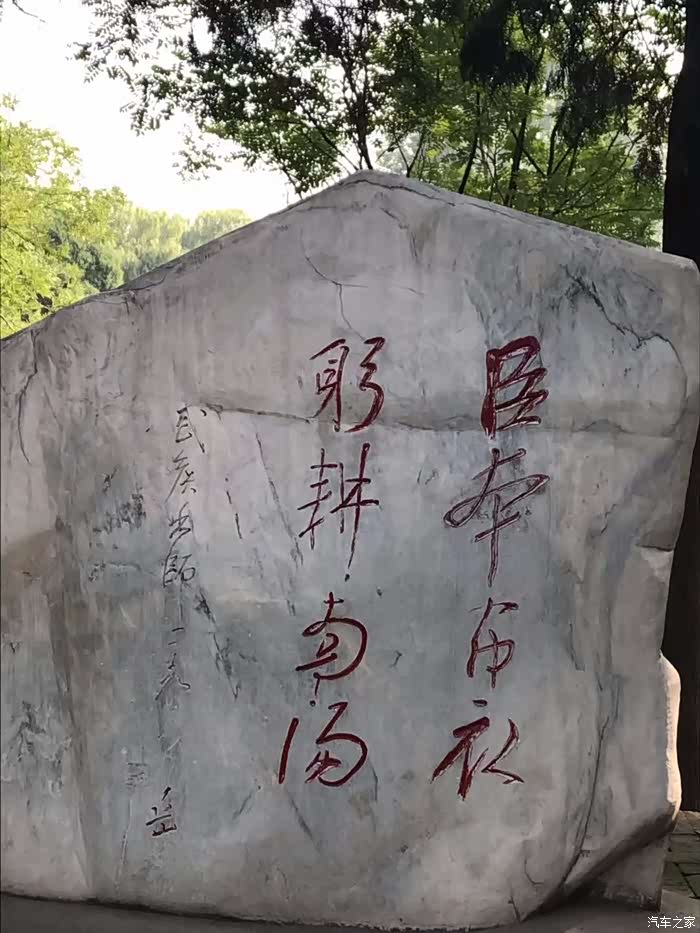 臣本布衣
躬耕南阳
武侯出師一表
岳
汽车之家